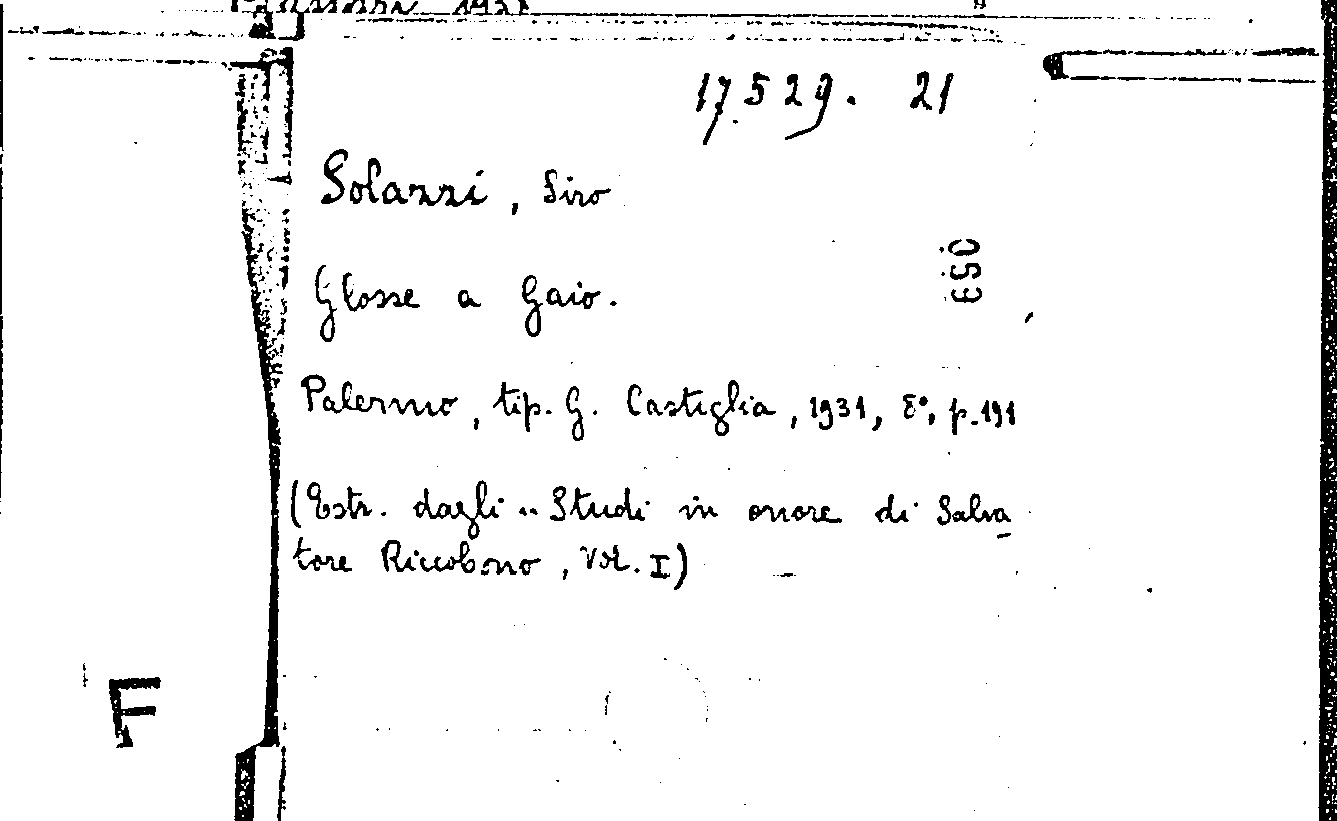 17.529. 21
Solazzi, Siro
053
Glosse a Gaio.
Palermo, tip. G. Castiglia, 1931, 8°, p. 191
(Estr. dagli "Studi in onore di Salva
tore Riccobono, Vol. I)
F